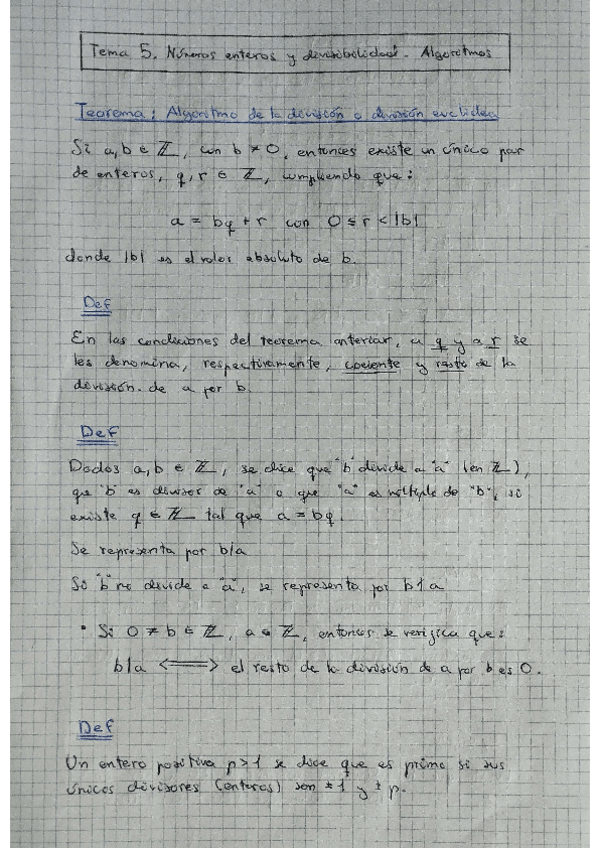 Tema 5. Números enteros y divisibilidad. Algoritmos
Teorema: Algoritmo de la división o división euclídea
Si a,b ∈ ℤ, con b ≠ 0, entonces existe un único par
de enteros, q,r ∈ ℤ, cumpliendo que:
a = bq + r con 0 ≤ r < |b|
donde |b| es el valor absoluto de b.
Def
En las condiciones del teorema anterior, a q y a r se
les denomina, respectivamente, cociente y resto de la
división de a por b.
Def
Dados a,b ∈ ℤ, se dice que "b" divide a "a" (en ℤ),
que "b" es divisor de "a" o que "a" es múltiplo de "b", si
existe q ∈ ℤ tal que a = bq.
Se representa por b|a
Si "b" no divide a "a", se representa por b∤a
• Si 0 ≠ b ∈ ℤ, a ∈ ℤ, entonces se verifica que:
b|a ⟺ el resto de la división de a por b es 0.
Def
Un entero positivo p>1 se dice que es primo si sus
únicos divisores (enteros) son ±1 y ±p.